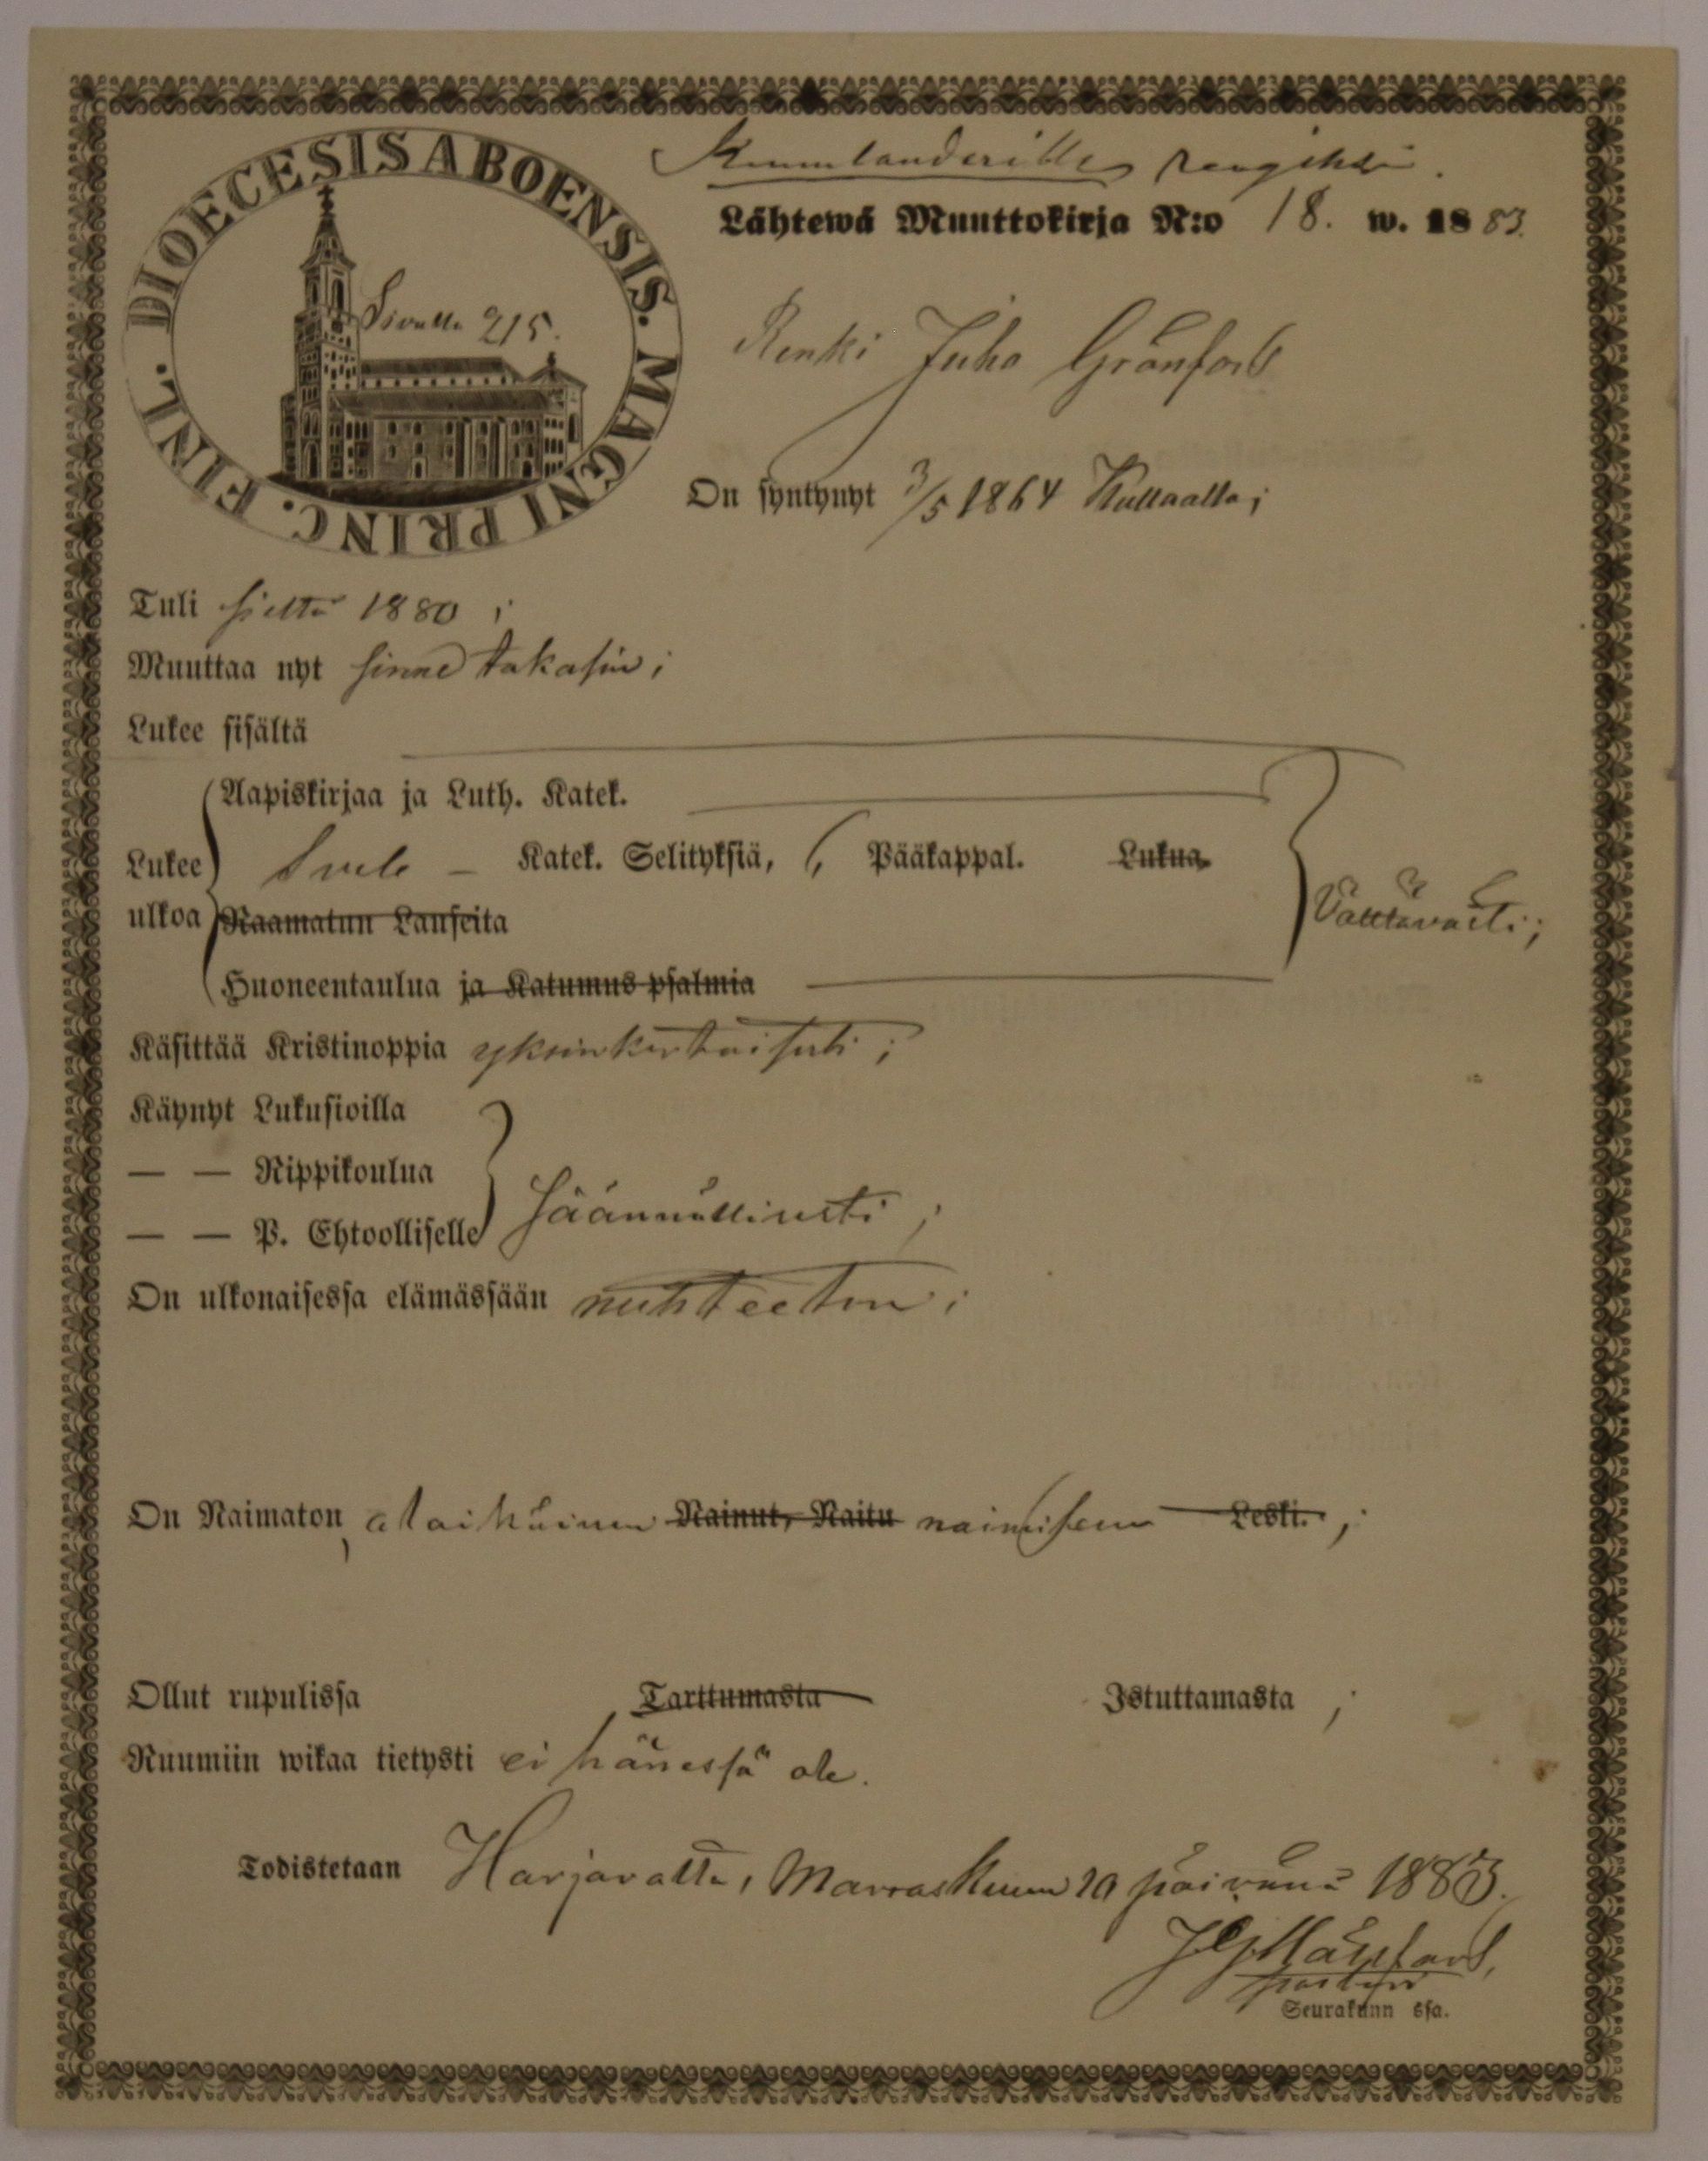 DIOECESIS ABOENSIS. MAGNI PRINC. FINL.
Sivulla 215.
Kumlanderille rengiksi.
Lähtewä Muuttokirja N:o 18. w. 1883.
Renki Juho Grönfors
On syntynyt 3/5 1864 Kullaalla;
Tuli sieltä 1880;
Muuttaa nyt sinne takasin;
Lukee sisältä
Aapiskirjaa ja Luth. Katek.
Lukee ulkoa Sveb – Katek. Selityksiä, Pääkappal. Lukua,
Raamatun Lauseita
Välttävästi;
Huoneentaulua ja Katumus psalmia
Käsittää Kristinoppia yksinkertaisesti;
Käynyt Lukusioilla
— — Rippikoulua
— — P. Ehtoolliselle säännöllisesti;
On ulkonaisessa elämässään nuhteeton;
On Naimaton, alaikäinen Nainut, Naitu naimiseen Leski.;
Ollut rupulissa Tarttumasta Istuttamasta;
Ruumiin wikaa tietysti ei hänessä ole.
Todistetaan Harjavalta, Marraskuun 20 päivänä 1883.
pastori
Seurakunn ssa.